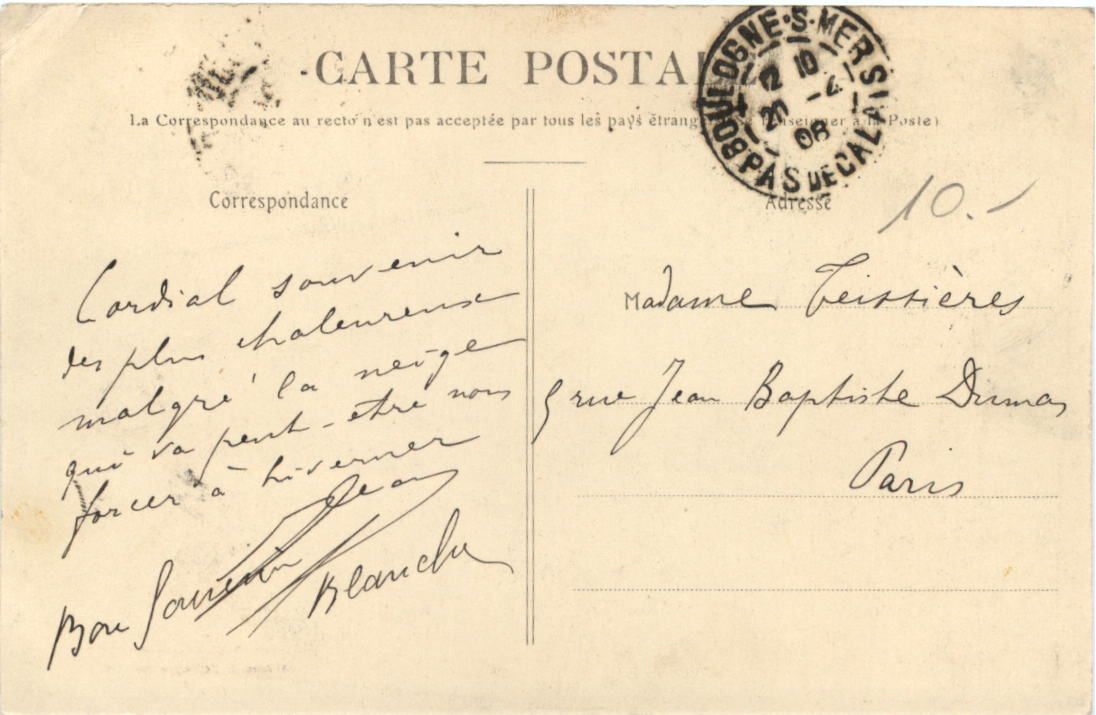 CARTE POSTALE
La Correspondance au recto n'est pas acceptée par tous les pays étrangers (Se renseigner à la Poste)
BOULOGNE-S-MER
PAS DE CALAIS
12 10
20 -4
08
Correspondance
Cordial souvenir
des plus chaleureux
malgré la neige
qui va peut-être nous
forcer à hiverner
Jean
Bon Souvenir
Blanche
Adresse
10.-
Madame Teissières
5 rue Jean Baptiste Dumas
Paris